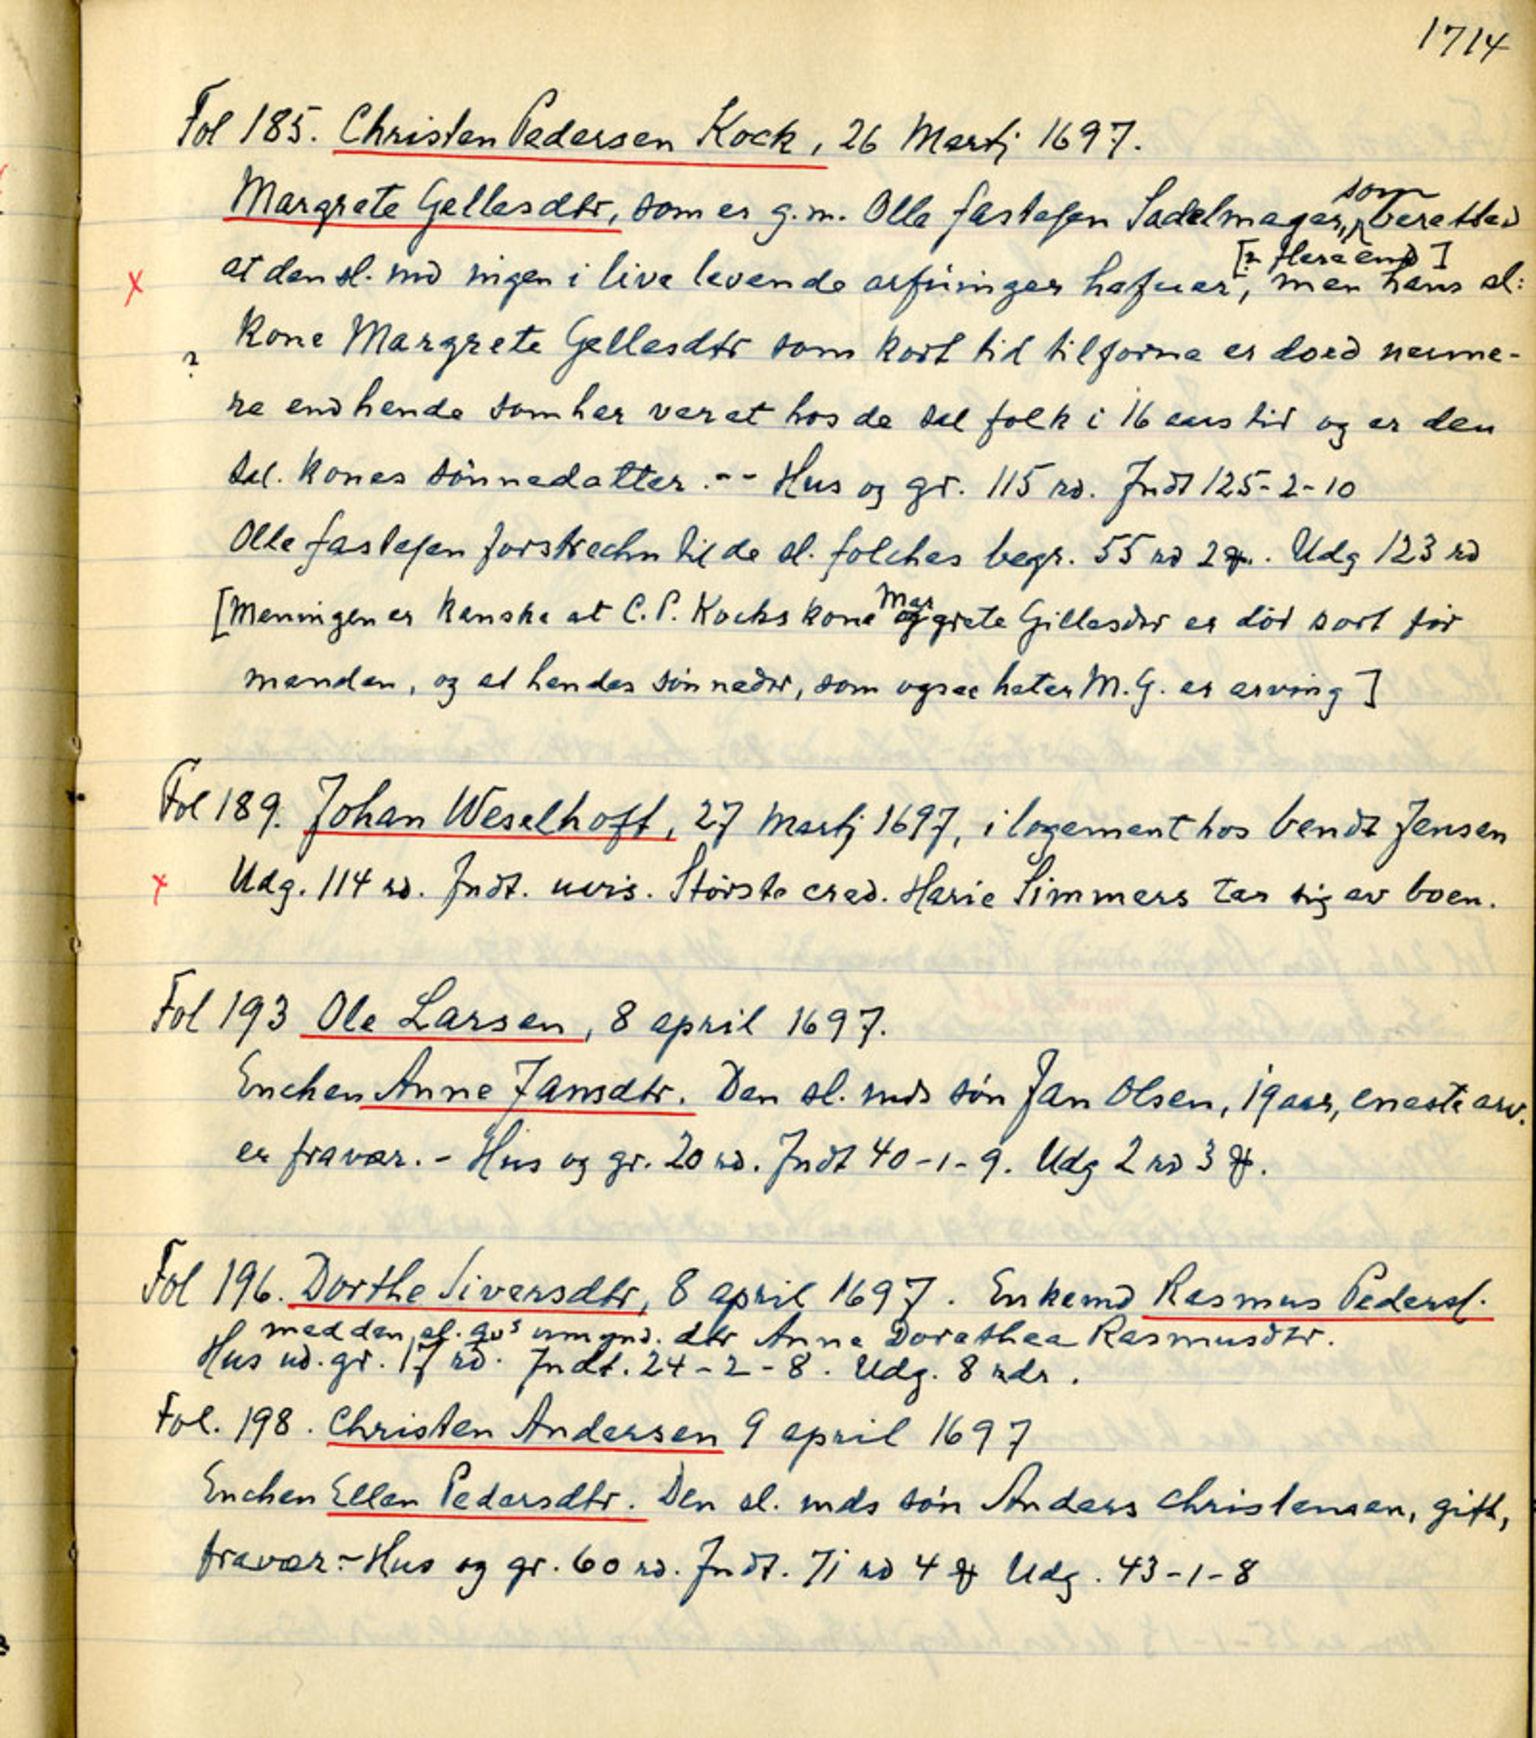 1714
Fol 185. Christen Pedersen Kock, 26 Martj 1697.
Margrete Gellesdtr, som er g.m. Olle fastesen Sadelmager, som beretted
at den sl. md ingen i live levende arfvinger hafuer, [? flere end] men hans sl:
? Kone Margrete Gellesdtr som kort tid tilforne er doed nerme-
re end hende som her veret hos de sal folk i 16 aars tid og er den
sal. kones sönnedatter. -- Hus og gr. 115 rd. Jndt 125-2-10
Olle fastesen forstrechn til de sl. folches begr. 55 rd 2 ℔. Udg 123 rd
[Meningen er kanske at C. P. Kocks kone Margrete Gillesdtr er död kort för
manden, og at hendes sönnedtr, som ogsaa heter M.G. er arving]
Fol 189. Johan Weselhoft, 27 Martj 1697, i logement hos bendt Jensen
x Udg. 114 rd. Jndt. uvis. Störste cred. Harie Simmers tar sig av boen.
Fol 193 Ole Larsen, 8 april 1697.
Enchen Anne Jansdtr. Den sl. mds sön Jan Olsen, 19 aar, eneste arv.
er fravær. - Hus og gr. 20 rd. Jndt 40-1-9. Udg 2 rd 3 ℔.
Fol 196. Dorthe Siversdtr, 8 april 1697. Enkemd Rasmus Peders.
med den sl. qvs umynd. dtr Anne Dorathea Rasmusdtr.
Hus ud. gr. 17 rd. Jndt. 24-2-8. Udg. 8 rdr.
Fol. 198. Christen Andersen 9 april 1697
Enchen Ellen Pedersdtr. Den sl. mds sön Anders Christensen, gift,
fravær - Hus og gr. 60 rd. Jndt. 71 rd 4 ℔ Udg. 43-1-8